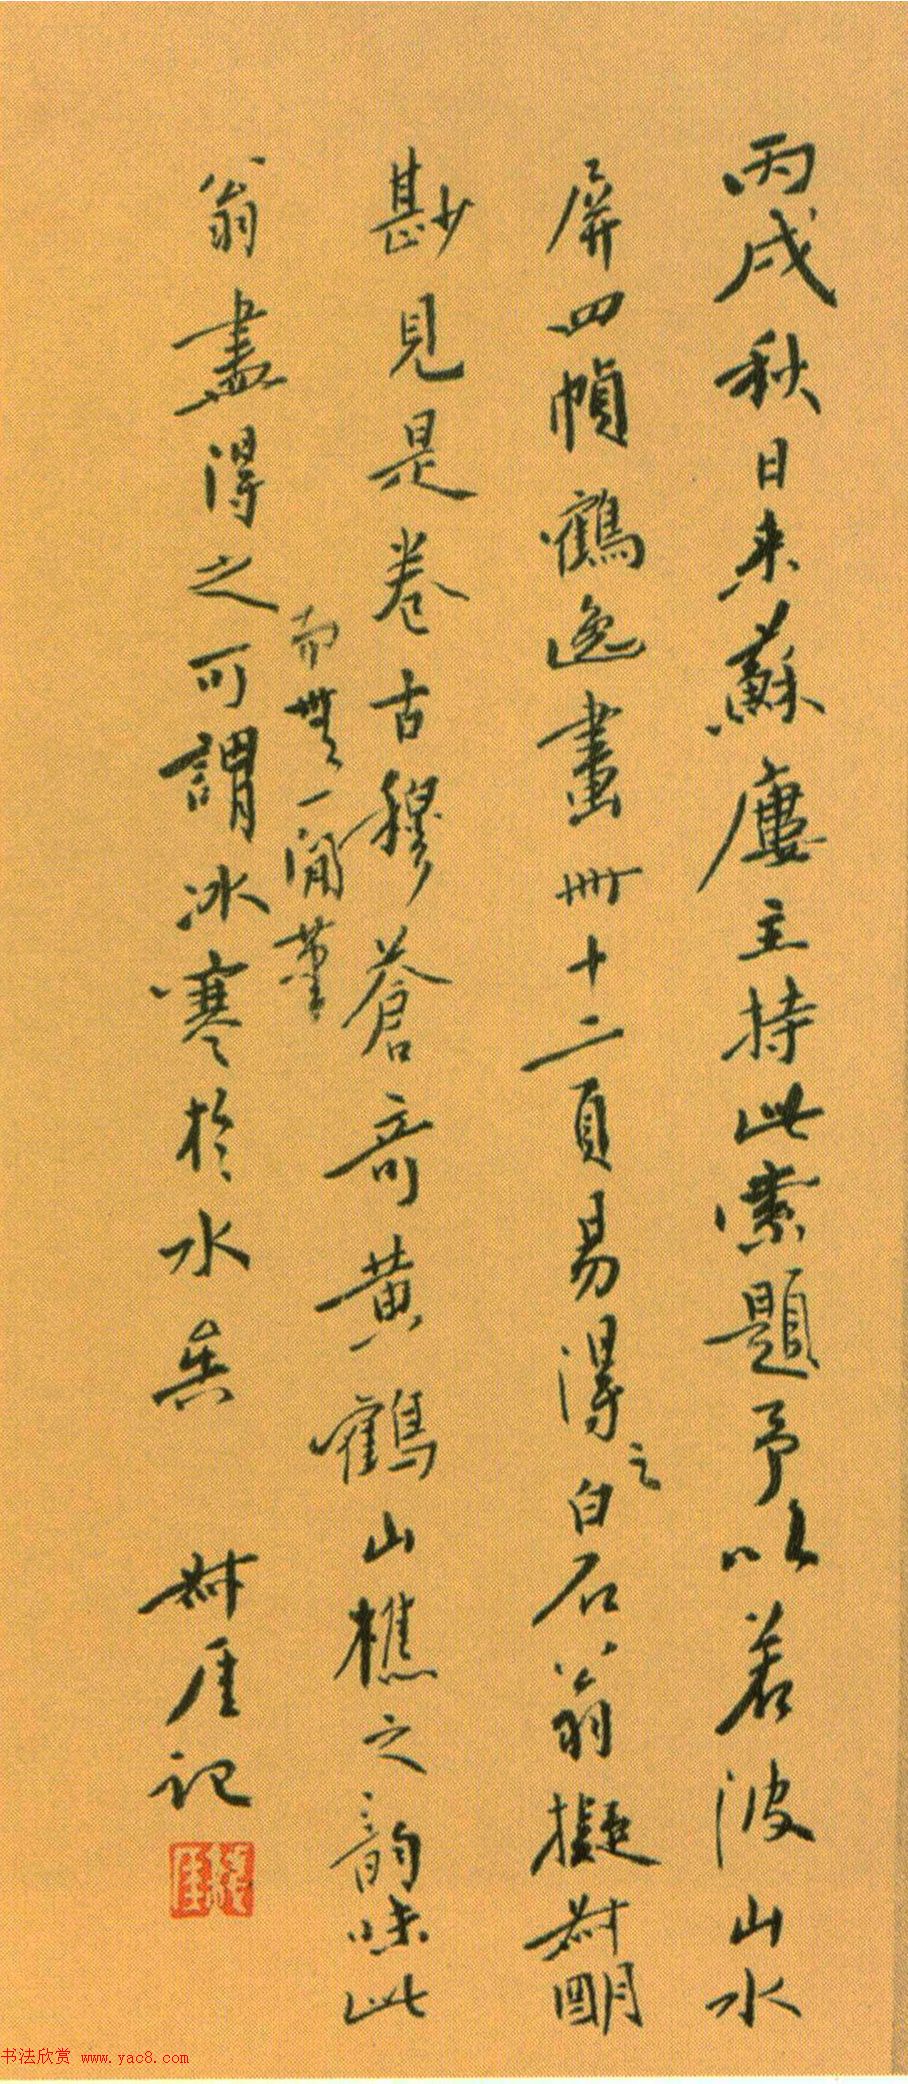 丙戌秋日来蘇廬主持此索題予以若波山水
屏四幀鶴逸畫冊十二頁易得之白石翁擬叔明
尠見是卷古穆蒼奇黄鶴山樵之韵味此
而無一滑筆
翁盡得之可謂冰寒於水矣 叔厓记
錢厓
书法欣赏 www.yac8.com